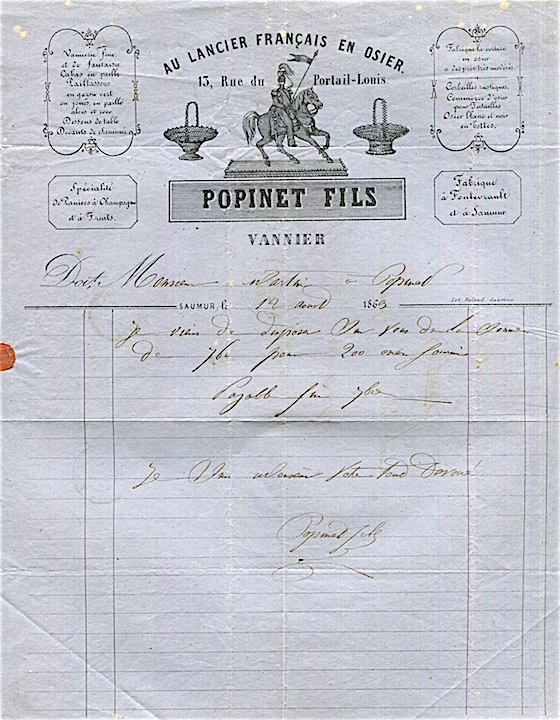 AU LANCIER FRANÇAIS EN OSIER.
13, Rue du Portail-Louis
Vannerie fine
et de fantaisie
Cabas en paille
Paillassons
en genre vert
en joncs, en paille
aloës et coco
Dessous de table
Devants de cheminée
Fabrique la voiture
en osier
a des prix très modérés.
Corbeilles rustiques,
Commerce d'osier
pour Futailles
Osier blanc et noir
en bottes.
Spécialité
de Paniers à Champagne
et à Fruits.
POPINET FILS
Fabrique
à Fontevrault
et à Saumur.
VANNIER
Doit, Monsieur Martin à Popinet
SAUMUR, le 12 août 1863
Lith. Roland, Saumur.
je viens de disposer sur vous de la somme
de 76 pour 200
Payable fin 7bre
Je suis Votre tout Dévoué
Popinet fils